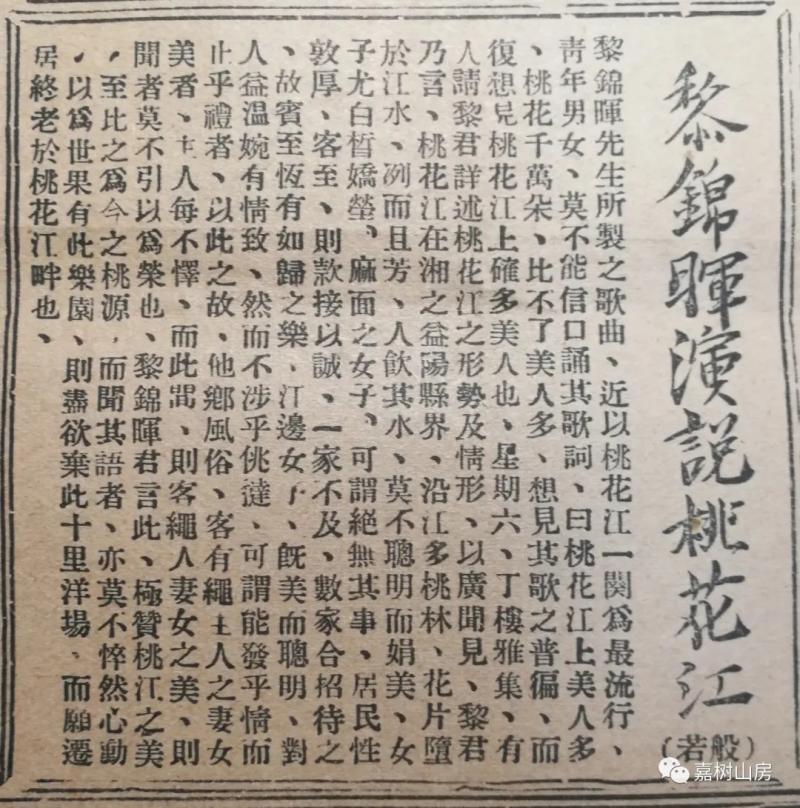 黎錦暉演説桃花江
(般若)
黎錦暉先生所製之歌曲、近以桃花江一闋爲最流行、
靑年男女、莫不能信口誦其歌詞、曰桃花江上美人多
、桃花千萬朵、比不了美人多、想見其歌之普徧、而
復想見桃花江上確多美人也、星期六、丁樓雅集、有
人請黎君詳述桃花江之形勢及情形、以廣聞見、黎君
乃言、桃花江在湘之益陽縣界、沿江多桃林、花片墮
於江水、冽而且芳、人飲其水、莫不聰明而娟美、女
子尤白皙嬌瑩、麻面之女子、可謂絕無其事、居民性
敦厚、客至、則款接以誠、一家不及、數家合招待之
、故賓至恆有如歸之樂、江邊女子、旣美而聰明、對
人益溫婉有情致、然而不涉乎佻撻、可謂能發乎情而
止乎禮者、以此之故、他鄉風俗、客有繩主人之妻女
美者、主人每不懌、而此間、則客繩人妻女之美、則
聞者莫不引以爲榮也、黎錦暉君言此、極贊桃江之美
，至比之爲今之桃源，而聞其語者、亦莫不悴然心動
，以爲世果有此樂園、則盡欲棄此十里洋場，而願遷
居終老於桃花江畔也、
嘉树山房